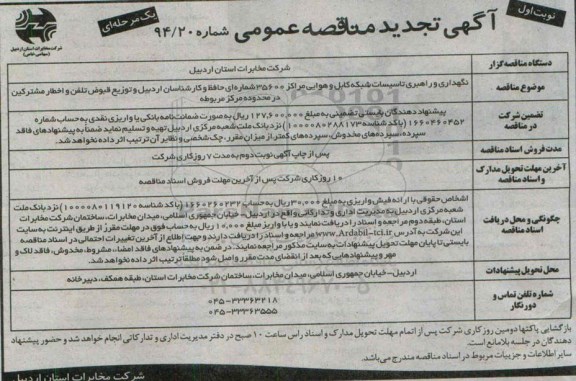 نوبت اول
آگهی تجدید مناقصه عمومی شماره ۹۴/۲۰
یک مرحله‌ای
شرکت مخابرات استان اردبیل
(سهامی خاص)
دستگاه مناقصه‌گزار
شرکت مخابرات استان اردبیل
موضوع مناقصه
نگهداری و راهبری تاسیسات شبکه کابل و هوایی مراکز ۳۵۶۰۰ شماره‌ای حافظ و کارشناسان اردبیل و توزیع قبوض تلفن و اخطار مشترکین
در محدوده مرکز مربوطه
تضمین شرکت
در مناقصه
پیشنهاد دهندگان بایستی تضمینی به مبلغ ۱۲۷,۶۰۰,۰۰۰ ریال به صورت ضمانت نامه بانکی یا واریزی نقدی به حساب شماره
۱۶۶۰۴۶۰۴۵۲ (با کد شناسه ۱۰۰۰۰۰۸۰۲۸۸۱۷۳) نزد بانک ملت شعبه مرکزی اردبیل تهیه و تسلیم نماید ضمنا به پیشنهادهای فاقد
سپرده، سپرده‌های مخدوش، سپرده‌های کمتر از میزان مقرر، چک شخصی و نظایر آن ترتیب اثر داده نخواهد شد.
مدت فروش اسناد مناقصه
پس از چاپ آگهی نوبت دوم به مدت ۷ روز کاری شرکت
آخرین مهلت تحویل مدارک
و اسناد مناقصه
۱۰ روز کاری شرکت پس از آخرین مهلت فروش اسناد مناقصه
چگونگی و محل دریافت
اسناد مناقصه
اشخاص حقوقی با ارائه فیش واریزی به مبلغ ۳۰,۰۰۰ ریال به حساب ۱۶۶۰۲۶۰۲۳۲ (با کد شناسه ۱۰۰۰۰۰۸۰۱۱۹۱۲۰) نزد بانک ملت
شعبه مرکزی اردبیل به مدیریت اداری و تدارکاتی واقع در اردبیل- خیابان جمهوری اسلامی، میدان مخابرات، ساختمان شرکت مخابرات
استان، طبقه دوم مراجعه و اسناد را دریافت نمایند و یا با واریز مبلغ ۱۰,۰۰۰ ریال به حساب فوق در مهلت مقرر از طریق اینترنت به سایت
این شرکت به آدرس www.Ardabil-tci.ir مراجعه و اسناد را دریافت دارند و جهت اطلاع از آخرین تغییرات احتمالی در اسناد مناقصه
بایستی تا پایان مهلت تحویل پیشنهادات به سایت مذکور مراجعه نمایند. در ضمن به پیشنهادهای فاقد امضاء، مشروط، مخدوش، فاقد لاک و
مهر و پیشنهادهایی که بعد از انقضای مدت مقرر واصل شود مطلقا ترتیب اثر داده نخواهد شد.
محل تحویل پیشنهادات
اردبیل- خیابان جمهوری اسلامی، میدان مخابرات، ساختمان شرکت مخابرات استان، طبقه همکف، دبیرخانه
شماره تلفن تماس و
دورنگار
۰۴۵-۳۳۳۶۳۲۱۸
۰۴۵-۳۳۳۶۳۵۵۵
بازگشایی پاکتها دومین روز کاری شرکت پس از اتمام مهلت تحویل مدارک و اسناد راس ساعت ۱۰ صبح در دفتر مدیریت اداری و تدارکاتی انجام خواهد شد و حضور پیشنهاد
دهندگان در جلسه بلامانع است.
سایر اطلاعات و جزییات مربوط در اسناد مناقصه مندرج می‌باشد.
شرکت مخابرات استان اردبیل